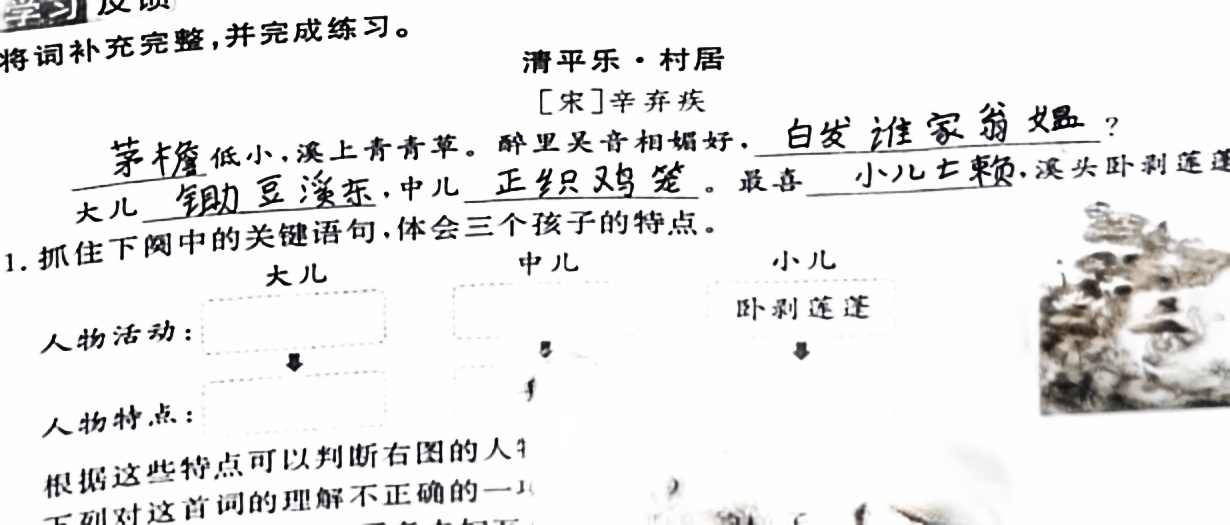 学习反馈
将词补充完整,并完成练习。
清平乐·村居
[宋]辛弃疾
茅檐低小,溪上青青草。醉里吴音相媚好,白发谁家翁媪?
大儿锄豆溪东,中儿正织鸡笼。最喜小儿亡赖,溪头卧剥莲蓬
1.抓住下阕中的关键语句,体会三个孩子的特点。
大儿 中儿 小儿
人物活动: 卧剥莲蓬
人物特点:
根据这些特点可以判断右图的人
下列对这首词的理解不正确的一